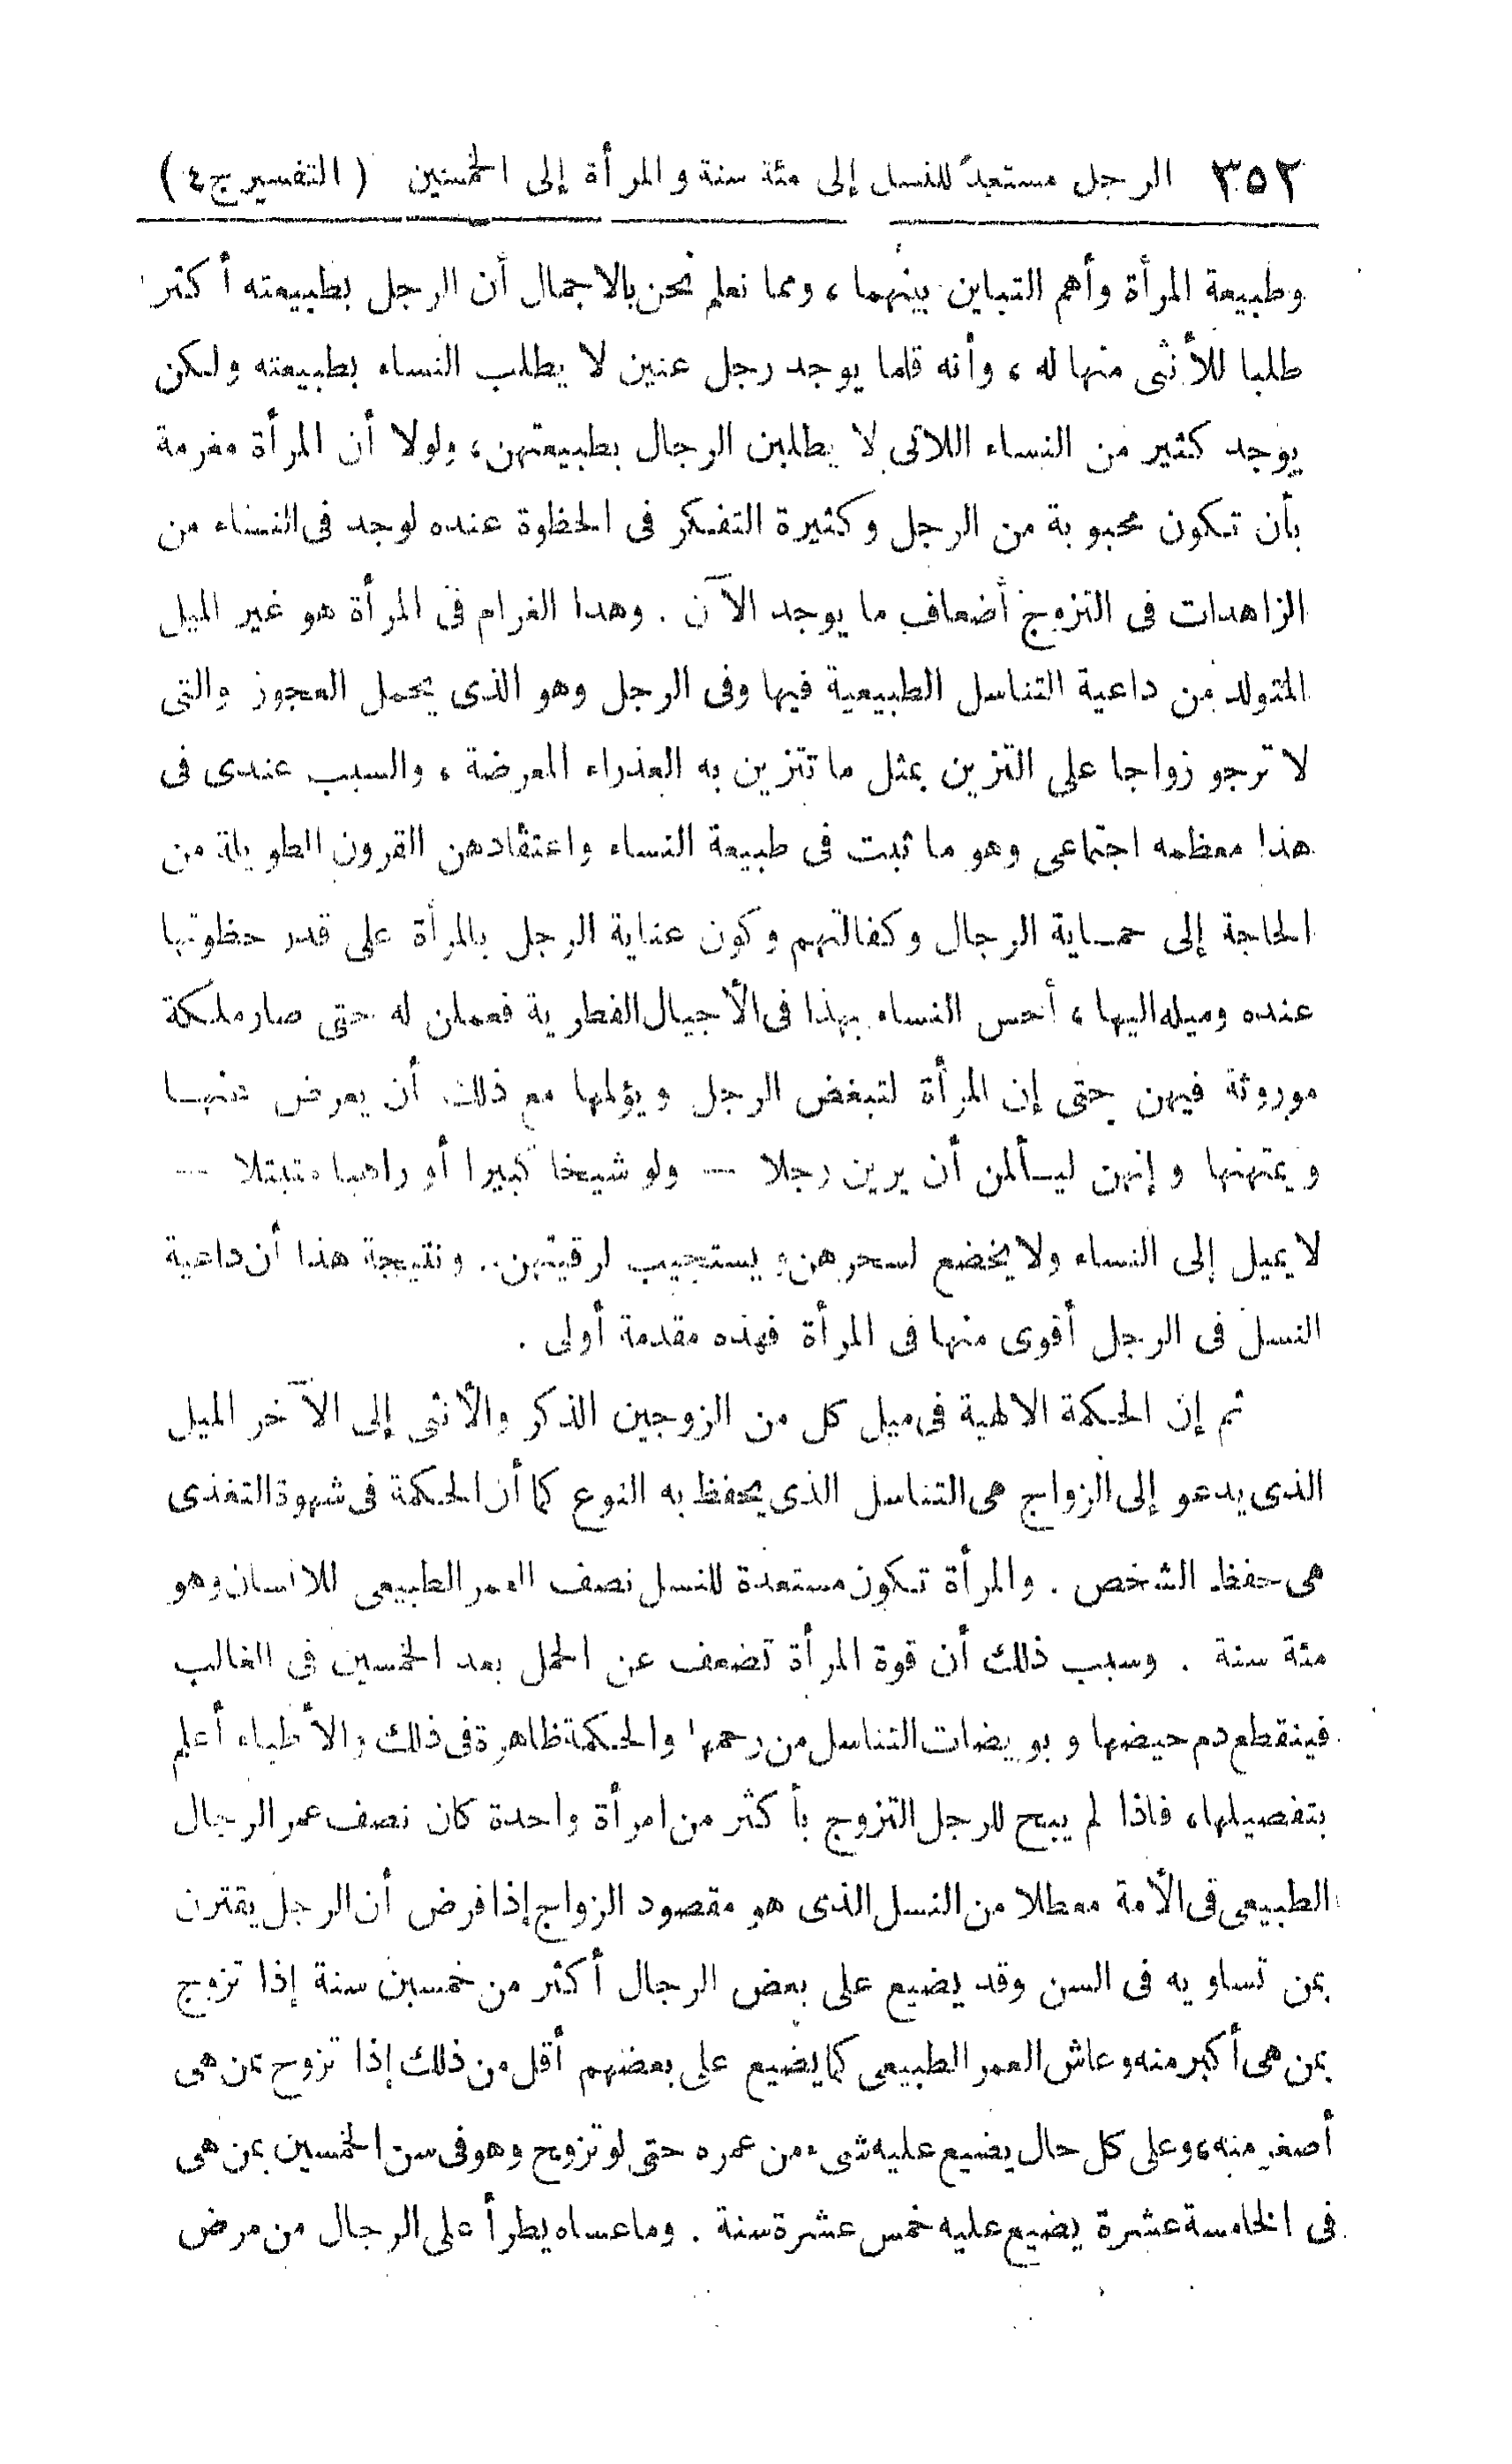 ٣٥٢ الرجل مستعدّ للنسل إلى مئة سنة والمرأة إلى الخمسين (التفسير ج٤)
وطبيعة المرأة وأهم التباين بينهما، ومما نعلم نحن بالاجمال أن الرجل بطبيعته أكثر
طلبا للأنثى منها له، وأنه قلما يوجد رجل عنين لا يطلب النساء بطبيعته ولكن
يوجد كثير من النساء اللاتى لا يطلبن الرجال بطبيعتهن، ولولا أن المرأة مغرمة
بأن تكون محبوبة من الرجل وكثيرة التفكر فى الحظوة عنده لوجد فى النساء من
الزاهدات فى التزوج أضعاف ما يوجد الآن . وهذا الغرام فى المرأة هو غير الميل
المتولد من داعية التناسل الطبيعية فيها وفى الرجل وهو الذى يحمل العجوز والتى
لا ترجو زواجا على التزين بمثل ما تتزين به العذراء المعرضة، والسبب عندى فى
هذا معظمه اجتماعى وهو ما ثبت فى طبيعة النساء واعتقادهن القرون الطويلة من
الحاجة إلى حماية الرجال وكفالتهم وكون عناية الرجل بالمرأة على قدر حظوتها
عنده وميله اليها، أحس النساء بهذا فى الأجيال الفطرية فعملن له حتى صار ملكة
موروثة فيهن حتى إن المرأة لتبغض الرجل ويؤلمها مع ذلك أن يعرض عنها
ويمتهنها وإنهن ليألمن أن يرين رجلا — ولو شيخا كبيرا أو راهبا متبتلا —
لا يميل إلى النساء ولا يخضع لسحرهن ويستجيب لرقيتهن . ونتيجة هذا أن داعية
النسل فى الرجل أقوى منها فى المرأة فهذه مقدمة أولى .
ثم إن الحكمة الالهية فى ميل كل من الزوجين الذكر والأنثى إلى الآخر الميل
الذى يدعو إلى الزواج هى التناسل الذى يحفظ به النوع كما أن الحكمة فى شهوة التغذى
هى حفظ الشخص . والمرأة تكون مستعدة للنسل نصف العمر الطبيعى للانسان وهو
مئة سنة . وسبب ذلك أن قوة المرأة تضعف عن الحمل بعد الخمسين فى الغالب
فينقطع دم حيضها وبويضات التناسل من رحمها والحكمة ظاهرة فى ذلك والأطباء أعلم
بتفصيلها، فاذا لم يبح للرجل التزوج بأكثر من امرأة واحدة كان نصف عمر الرجال
الطبيعى فى الأمة معطلا من النسل الذى هو مقصود الزواج إذا فرض أن الرجل يقترن
بمن تساويه فى السن وقد يضيع على بعض الرجال أكثر من خمسين سنة إذا تزوج
بمن هى أكبر منه وعاش العمر الطبيعى كما يضيع على بعضهم أقل من ذلك إذا تزوج بمن هى
أصغر منه، وعلى كل حال يضيع عليه شىء من عمره حتى لو تزوج وهو فى سن الخمسين بمن هى
فى الخامسة عشرة يضيع عليه خمس عشرة سنة . وما عساه يطرأ على الرجال من مرض